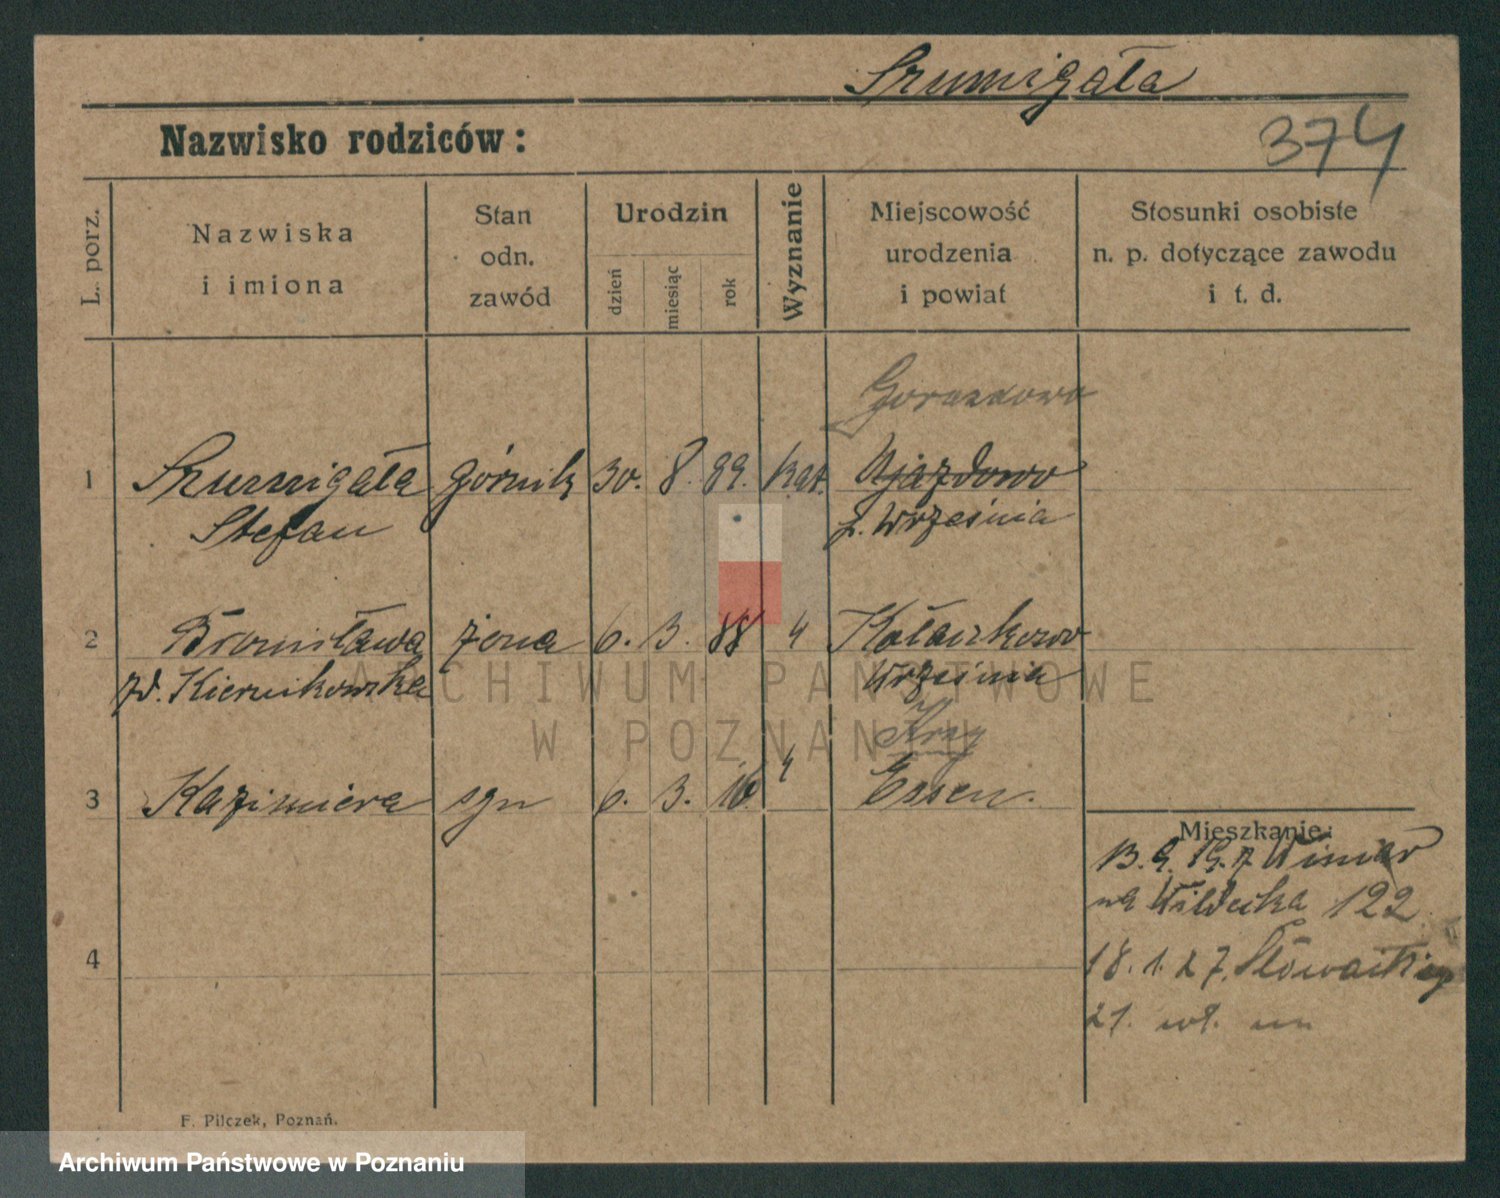 Szumigała
Nazwisko rodziców:
374
L. porz.
Nazwiska
i imiona
Stan
odn.
zawód
Urodzin
dzień
miesiąc
rok
Wyznanie
Miejscowość
urodzenia
i powiat
Stosunki osobiste
n. p. dotyczące zawodu
i t. d.
Gorazdowo
1 Szumigała górnik 30. 8. 89. kat. Ujazdowo
Stefan p. Września
2 Bronisława żona 6. 3. 88 " Kołaczkowo
zd. Kiernikowska Września
3 Kazimiera 6. 3. 16 " Essen.
Mieszkanie:
13. 9. 19. z
122
4
18. 1. 27. Słowackiego
21.
F. Pilczek, Poznań.
ARCHIWUM PAŃSTWOWE
W POZNANIU
Archiwum Państwowe w Poznaniu